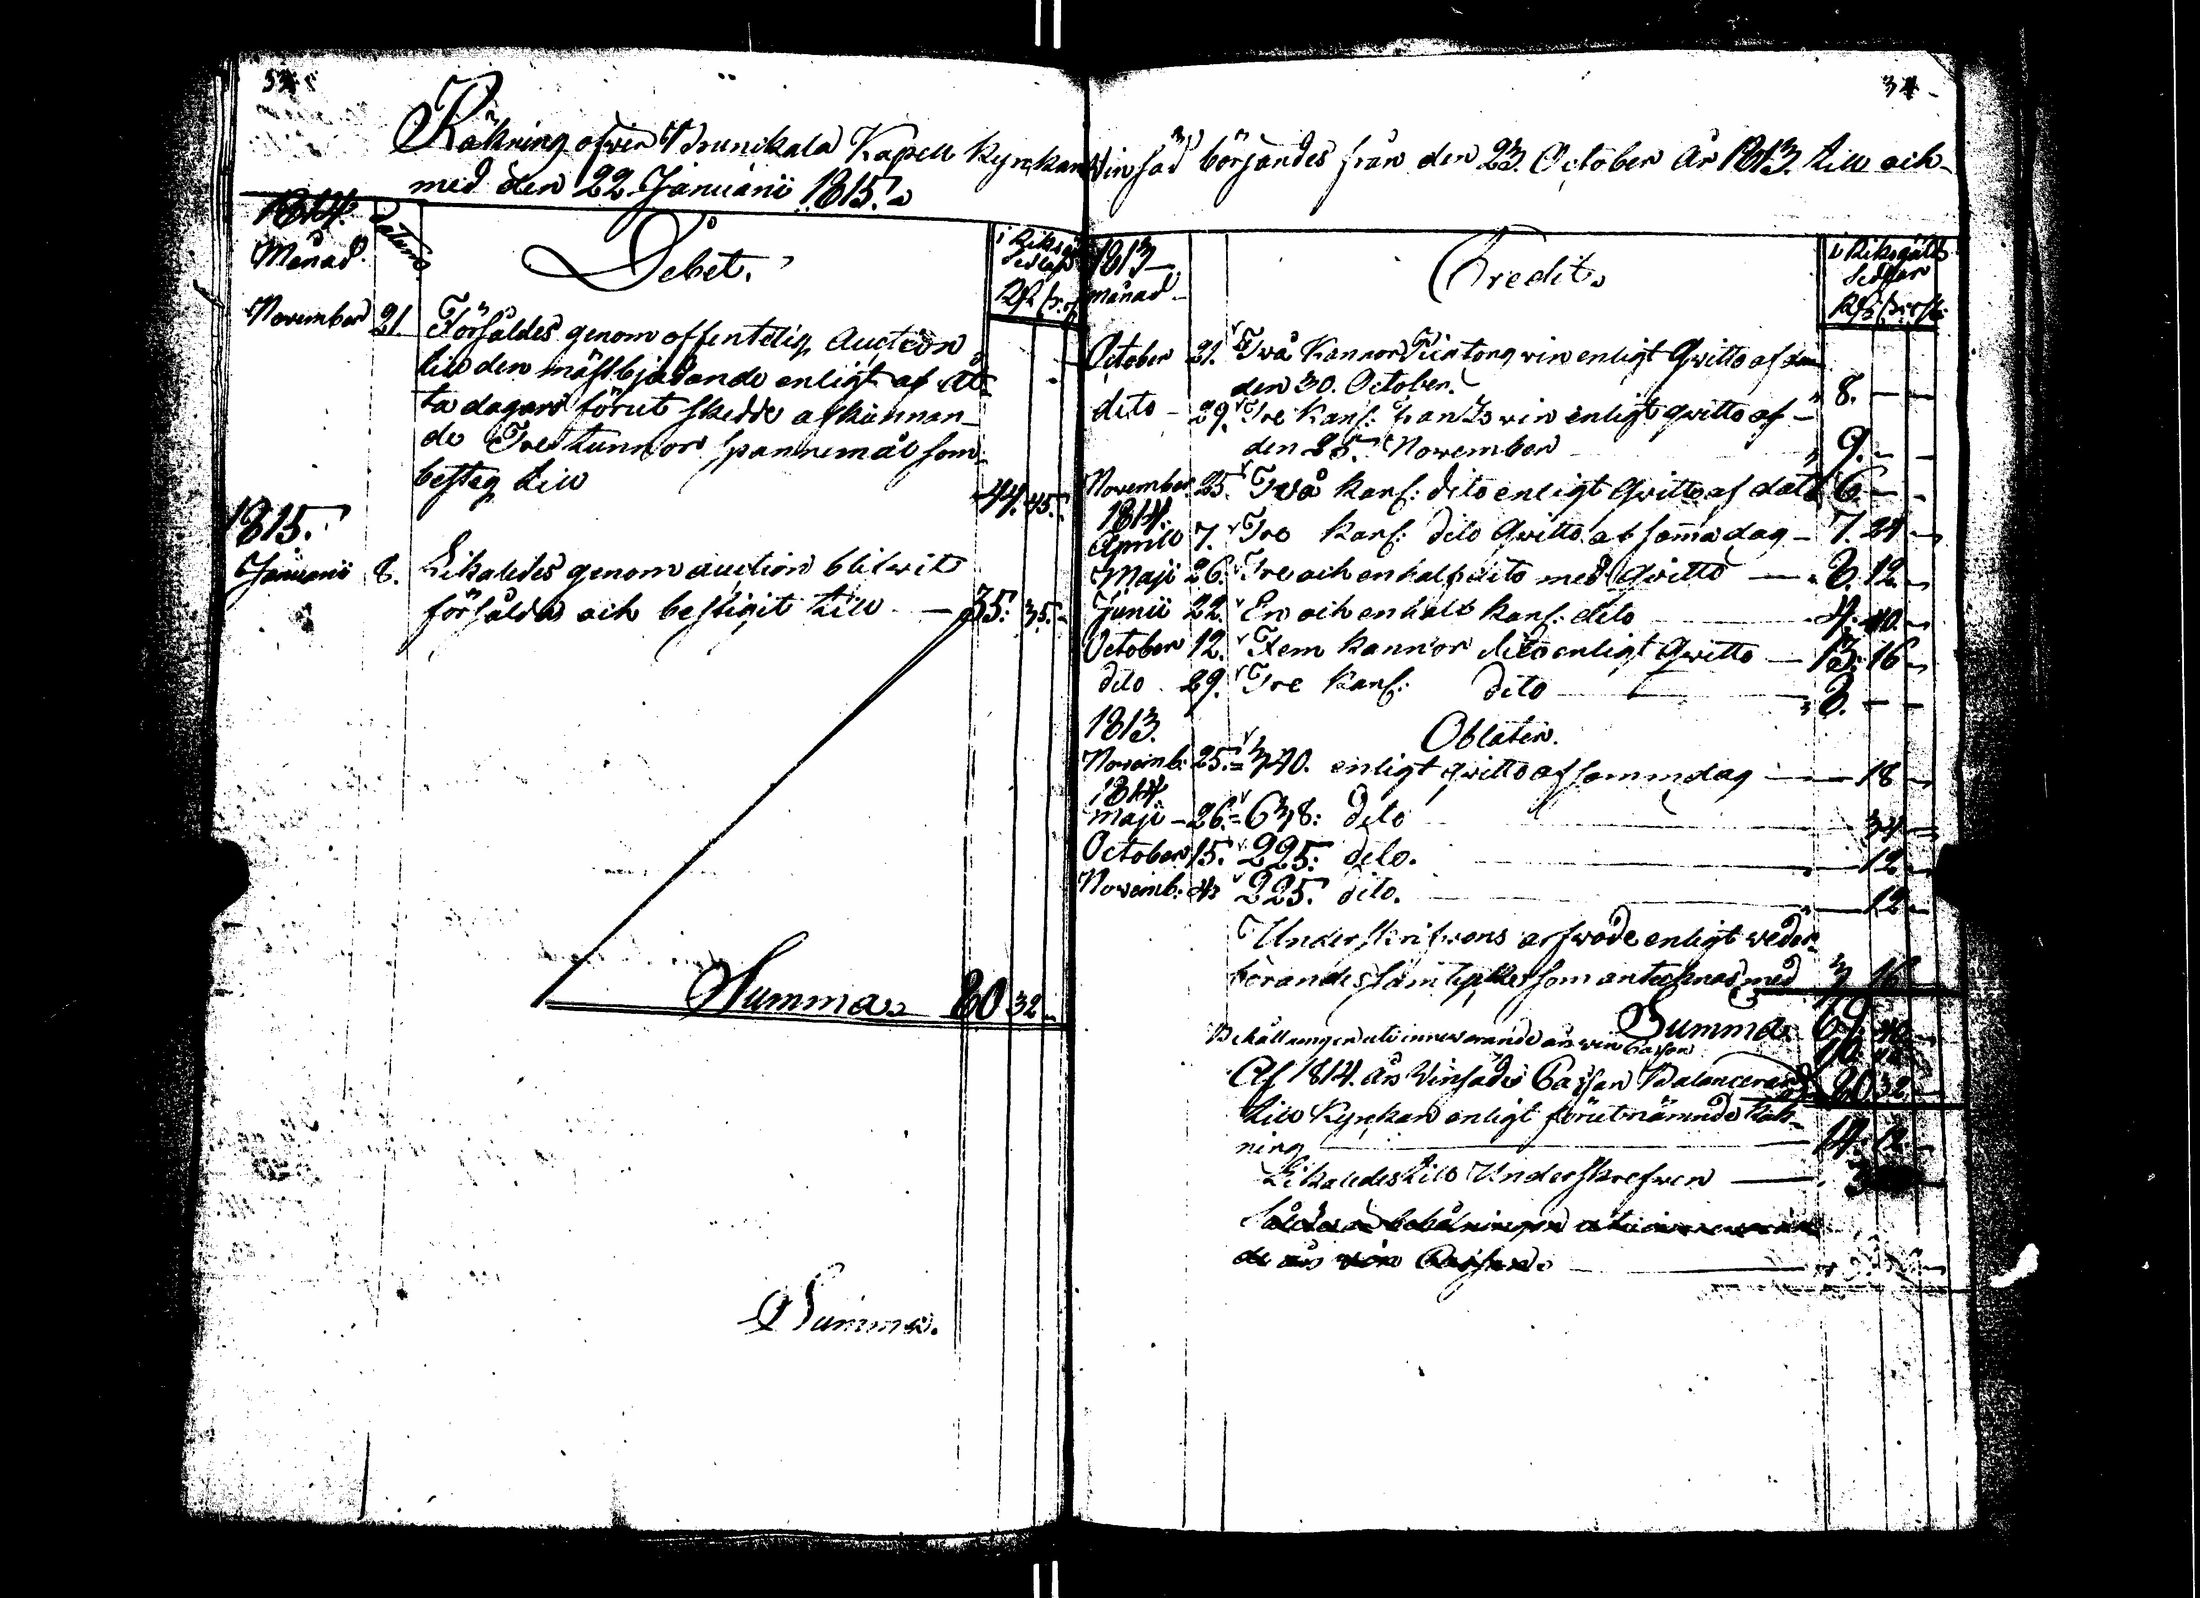 34
Räkning öfwer Brunikala Kapell Kyrkans
med den 22 Januarii 1815.
1814.
Månad. Datum
Debet.
i Riksg.
Sedlar
November 21 Försåldes genom offentelig Auction
till den mästbjudande enligt af åt-
ta dagars förut skedde afkunnan-
de Tre tunnor spannemål som
besteg till 44. 45.
1815.
Januarii 8. Likaledes genom auction blifwit
försålde och bestigit till — 35. 35. -
Summa 80 32 -
Summa.
34
Winsäd börjandes från den 23. October År 1813. till och
1813
månad
Credit.
i Riksgälds
Sedlar
October 21. Två Kannor win enligt Qwitto af
den 30. October. 8. — —
dito 29. Tre Kan: franskt win enligt qwitto af
den 25. November 9. — —
November 25. Två kan: dito enligt Qwitto af dato 6. — -
1814.
Aprill 7. Tre kan: dito Qwitto af samma dag — 7. 24 —
Maji 26. Tre och en half dito med Qwitto — 8. 12 —
Junii 22. En och en half kan: dito 4. 40. —
October 12. Fem kannor dito enligt Qwitto — 13. 16 —
dito 29. Tre Kan: dito 8. — —
1813.
Oblater.
Novemb: 25. 340. enligt qwitto af samma dag — 18 —
1814
maji - 26. 638: dito 34 —
October 15. 225. dito. 12 —
Novemb: 225. dito. 12 —
Underskrifwens arfwode enligt weder-
börandes samtycke som antecknas med 3 16
Summa 69 40
Behållningen uti innewarande års win Cassan 10 40
Af 1814. års Winsäds Cassan Balancerar 80 32
till Kyrkan enligt förutnämnde Räk-
ning 14. 12. —
Likaledes till Underskrefwen — 3